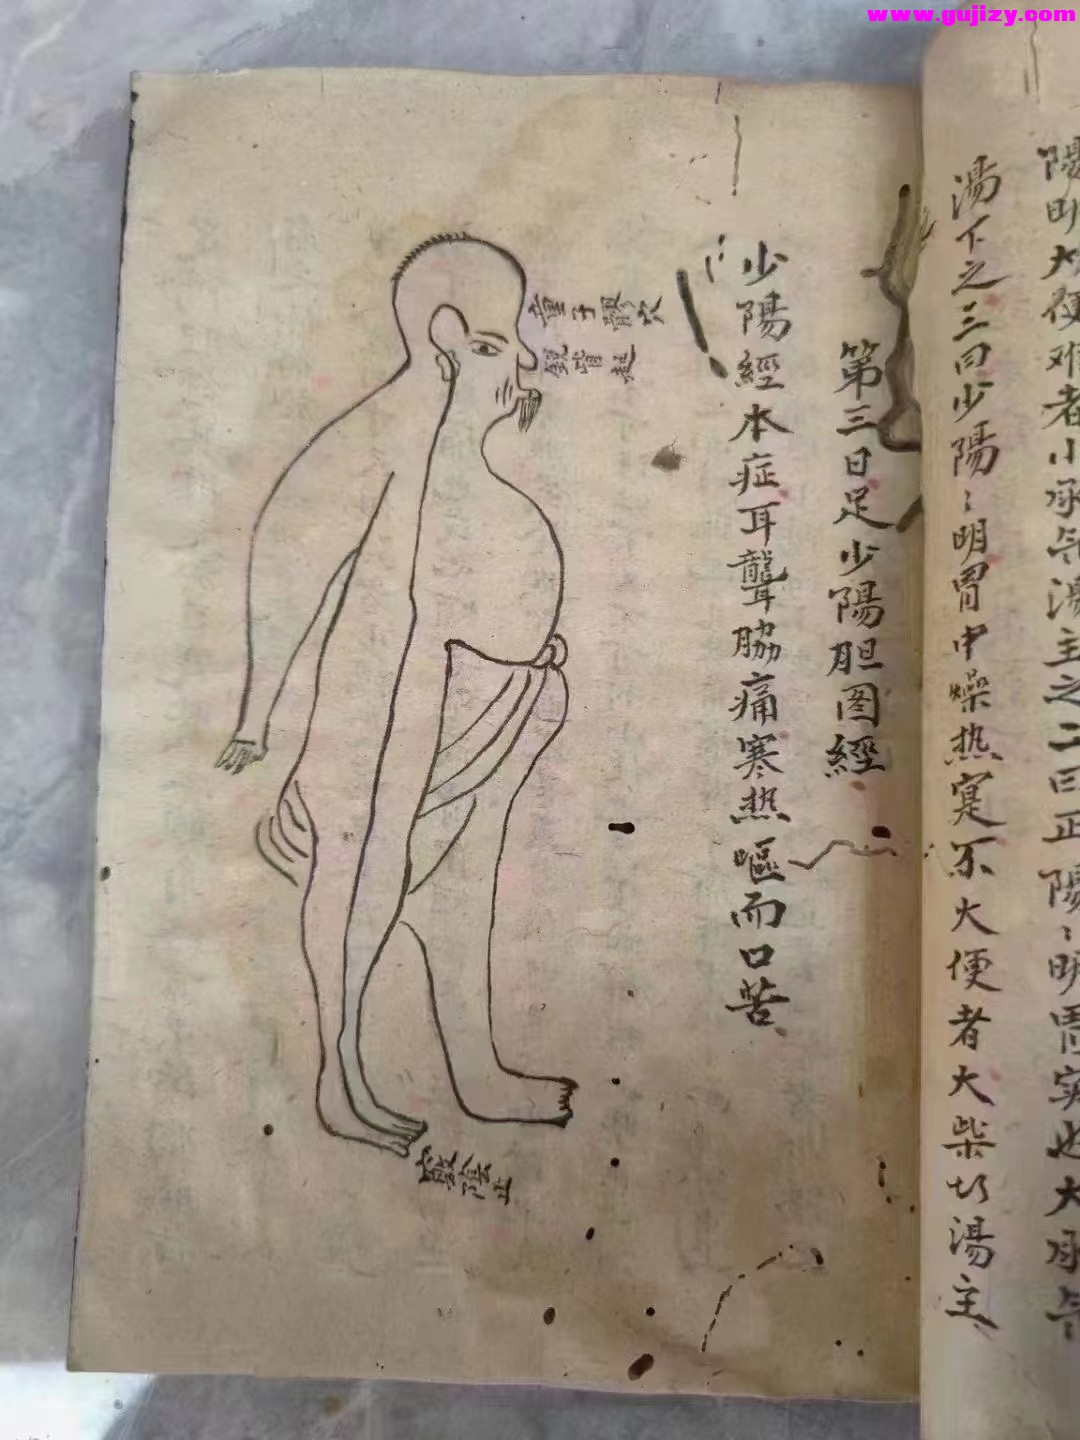 www.gujizy.com
陽明大便难者小承气湯主之二曰正陽〻明胃实也大承气
湯下之三曰少陽〻明胃中燥热寔不大便者大柴胡湯主
第三日足少陽胆图經
少陽經本症耳聾脇痛寒热嘔而口苦
童子髎穴
銳眥起
竅陰止